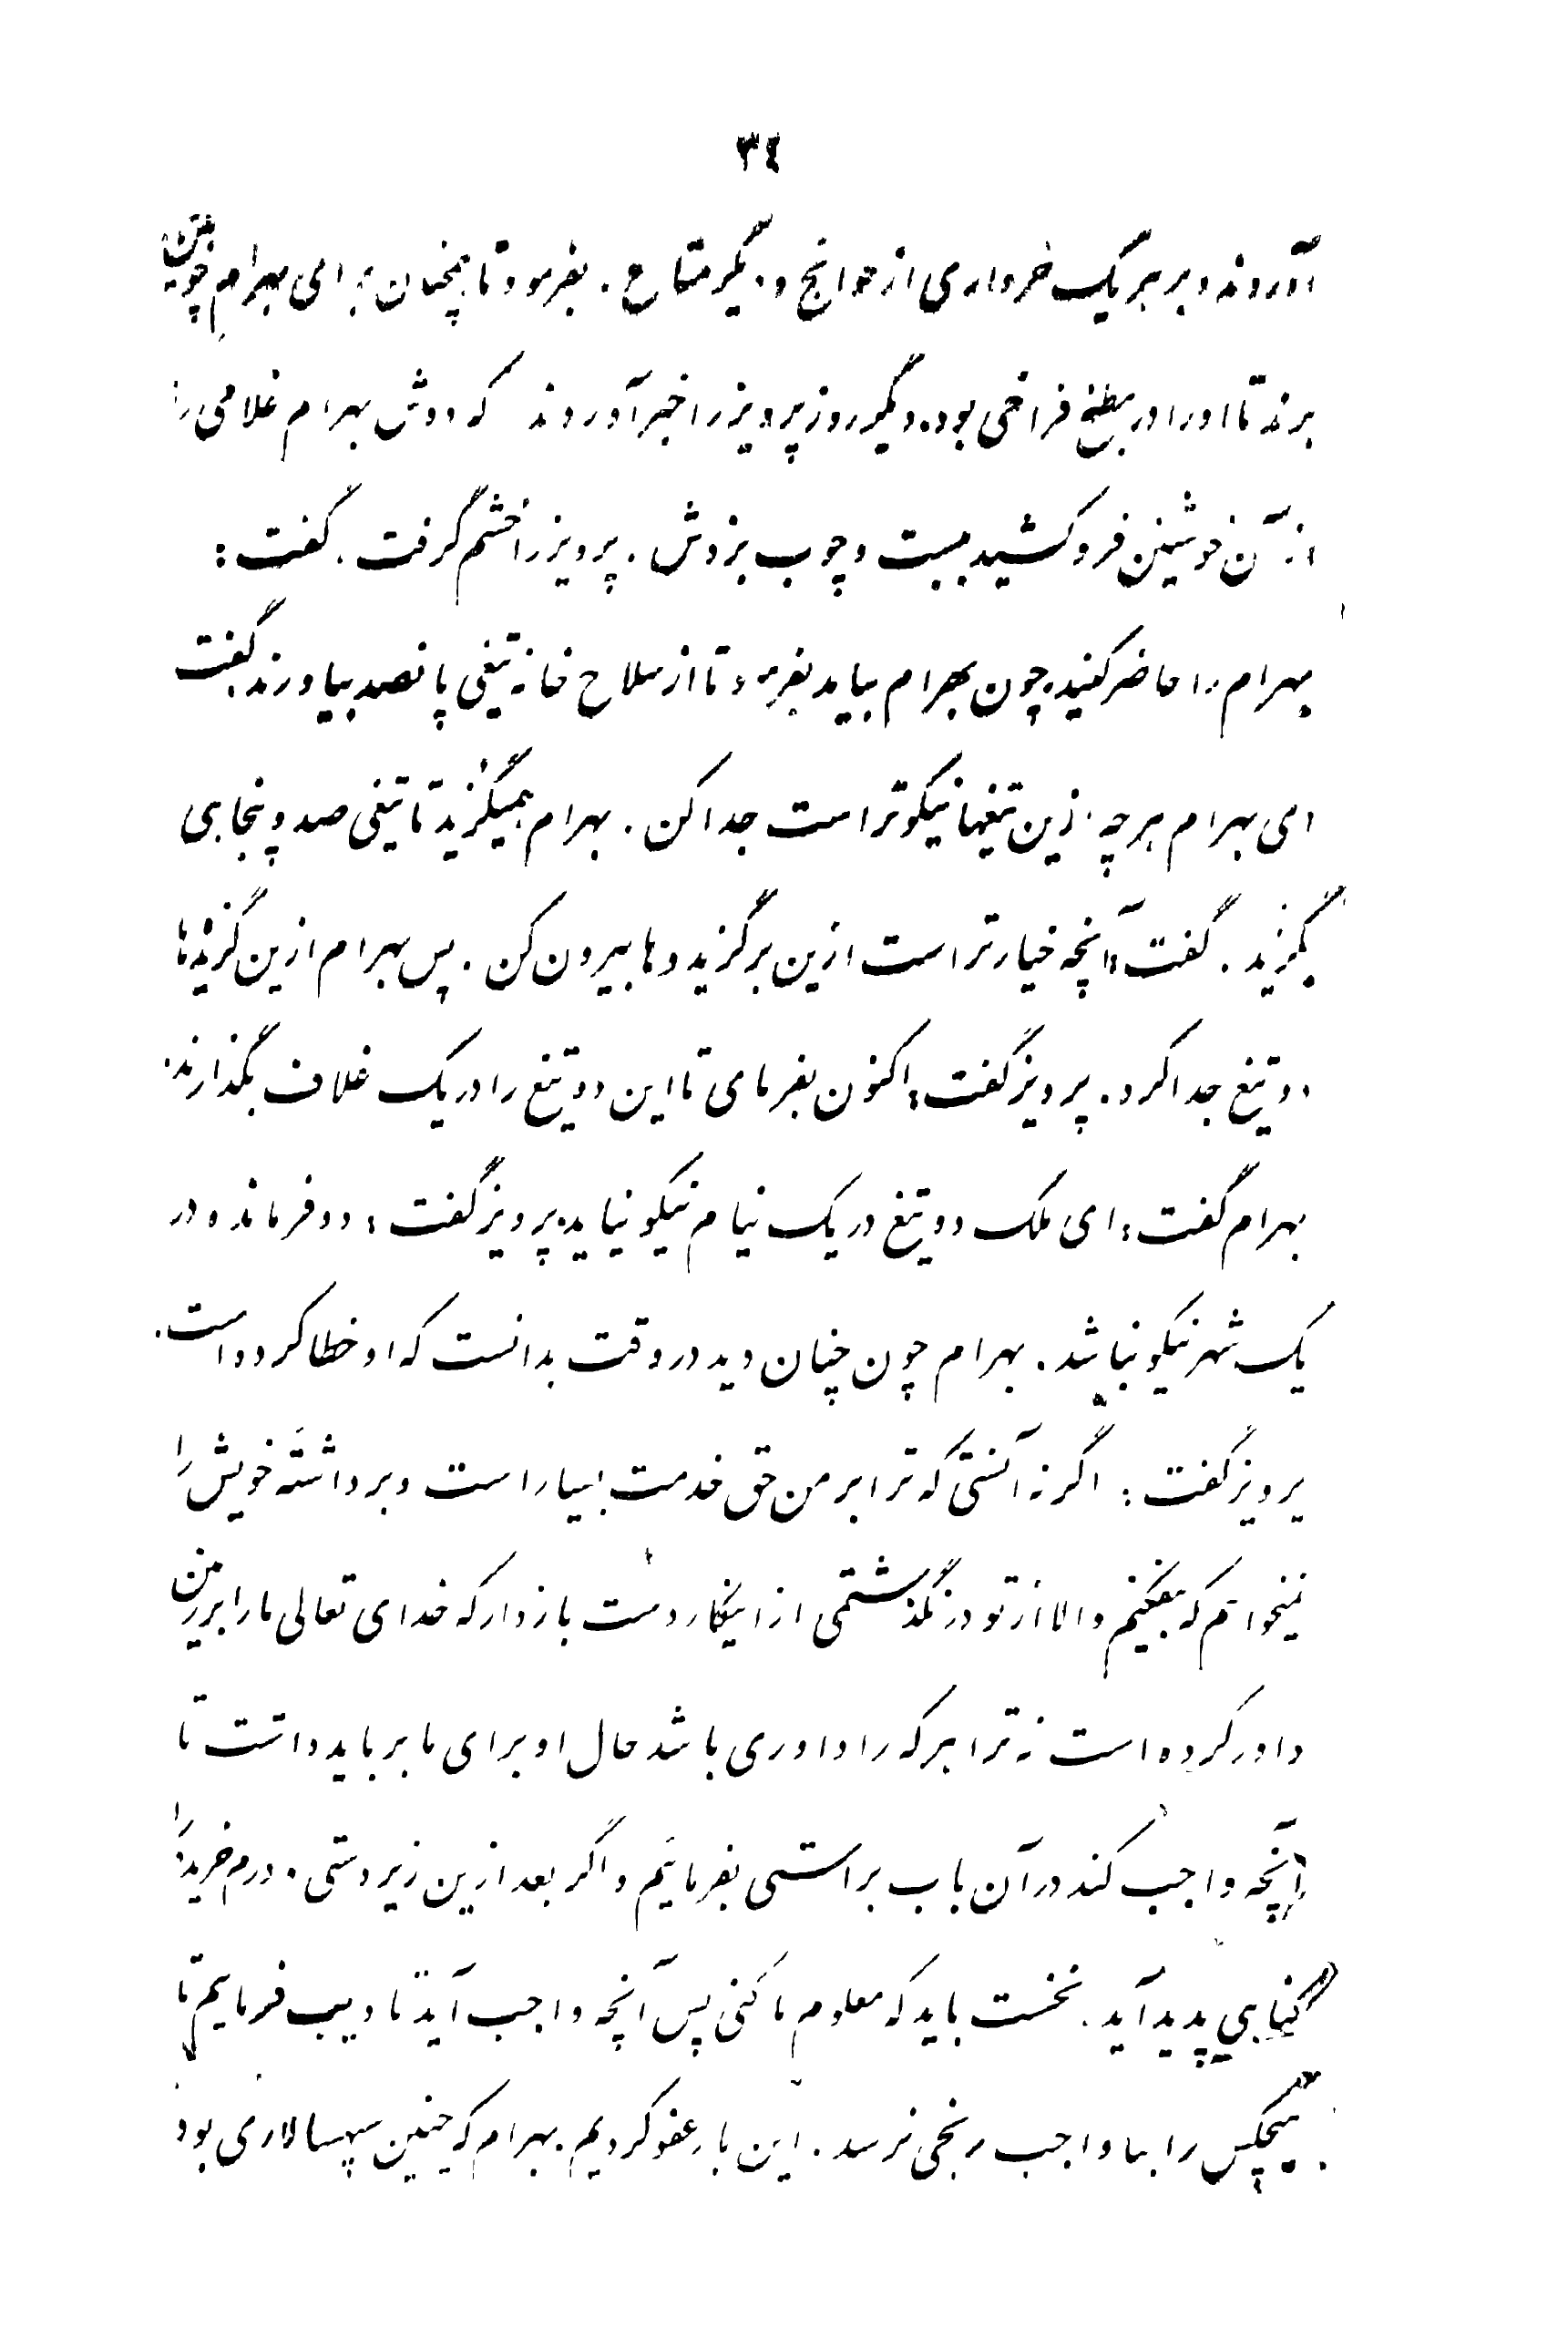 ۳٤
آوردند و بر هر یک خرواری از حوائج و دیگر متاع . بفرمود تا همچنان برای بهرام چوبین
برند تا او را در مطبخ فراخی بود. دیگر روز پرویز را خبر آوردند که دوش بهرام غلامی را
از آن خویشتن فرو کشید ببست و چوب بزدش . پرویز را خشم گرفت . گفت :
بهرام را حاضر کنید. چون بهرام بیاید بفرمود تا از سلاح خانه تیغی پانصد بیاورند. گفت
ای بهرام هر چه ازین تیغها نیکوتر است جدا کن . بهرام همیگزید تا تیغی صد و پنجاهی
بگزید . گفت : آنچه خیارتر است ازین برگزیده‌ها بیرون کن . پس بهرام ازین گزیده‌ها
دو تیغ جدا کرد . پرویز گفت : اکنون بفرمای تا این دو تیغ را در یک غلاف بگذارند.
بهرام گفت : ای ملک دو تیغ در یک نیام نیکو نیاید. پرویز گفت : دو فرمانده در
یک شهر نیکو نباشد . بهرام چون چنان دید در وقت بدانست که او خطا کرده است .
پرویز گفت : اگر نه آنستی که ترا بر من حق خدمت بسیار است و برداشته خویش را
نمیخواهم که بیفکنیم والا از تو در نگذشتمی از اینکار دست بازدار که خدای تعالی ما را بر زمین
داور کرده است نه ترا هر که را داوری باشد حال او برای ما بر باید داشت تا
آنچه واجب کند در آن باب براستی بفرمائیم و اگر بعد ازین زیردستی . درم خریده را
گناهی پدید آید . نخست باید که معلوم ما کنی پس آنچه واجب آید تادیب فرمایم تا
هیچکس را بناواجب رنجی نرسد . این بار عفو کردیم . بهرام که چنین سپهسالاری بود